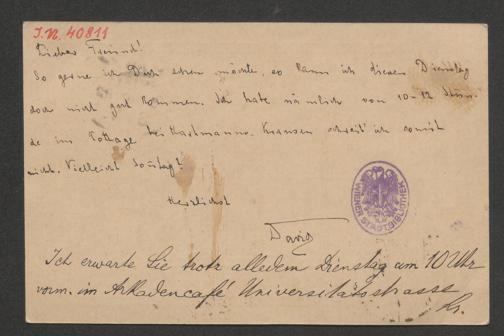 I.N. 40811
Lieber Freund!
So gerne ich Dich sehen möchte, so kann ich diesen Dienstag
doch nicht gut kommen. Ich habe nämlich von 10-12 Stun-
de im Cottage bei Hartmanns. Kransen schreib ich somit
nicht. Vielleicht Sonntag?
Herzlichst
David
WIENER STADTBIBLIOTHEK
Ich erwarte Sie trotz alledem Dienstag um 10 Uhr
vorm. im Arkadencafé Universitätsstrasse